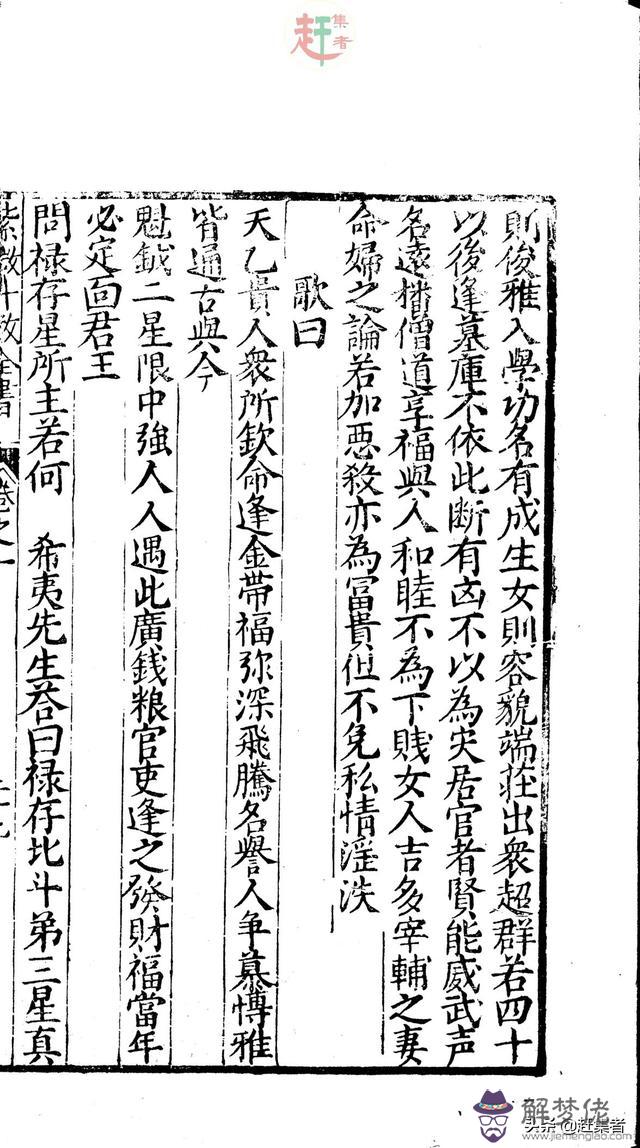 赶集者
則俊雅入學功名有成生女則容貌端莊出衆超群若四十
以後逢墓庫不依此断有凶不以為灾居官者賢能威武声
名遠播僧道享福與人和睦不為下賎女人吉多宰輔之妻
命婦之論若加惡殺亦為富貴但不免私情滛泆
歌曰
天乙貴人衆所欽命逢金帶福弥深飛騰名譽人争慕博雅
皆通古與今
魁鉞二星限中強人人遇此廣錢粮官吏逢之發財福當年
必定面君王
問禄存星所主若何 希夷先生答曰禄存北斗第三星真
紫微斗数全書 卷之一
解梦佬
www.jiemenglao.com
头条@赶集者